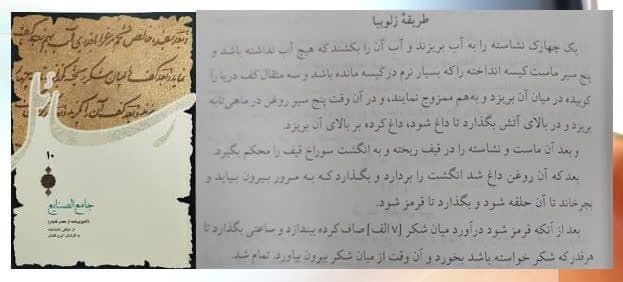 طریقهٔ زلوبیا
یک چهارک نشاسته را به آب بریزند و آب آن را بکشند که هیچ آب نداشته باشد و
پنج سیر ماست کیسه انداخته را که بسیار نرم در کیسه مانده باشد و سه مثقال کف دریا را
کوبیده در میان آن بریزد و به‌هم ممزوج نمایند، و در آن وقت پنج سیر روغن در ماهی‌تابه
بریزد و در بالای آتش بگذارد تا داغ شود، داغ کرده بر بالای آن بریزد.
و بعد آن ماست و نشاسته را در قیف ریخته و به انگشت سوراخ قیف را محکم بگیرد.
بعد که آن روغن داغ شد انگشت را بردارد و بگذارد که به مرور بیرون بیاید و
بچرخاند تا آن حلقه شود و بگذارد تا قرمز شود.
بعد از آنکه قرمز شود درآورد میان شکر [۷ الف] صاف کرده بیندازد و ساعتی بگذارد تا
هرقدر که شکر خواسته باشد بخورد و آن وقت از میان شکر بیرون بیاورد. تمام شد.
رسائل
۱۰
جامع الصنایع
(آشپزی‌نامه از عصر قاجار)
از مؤلفی ناشناخته
به کوشش ایرج افشار